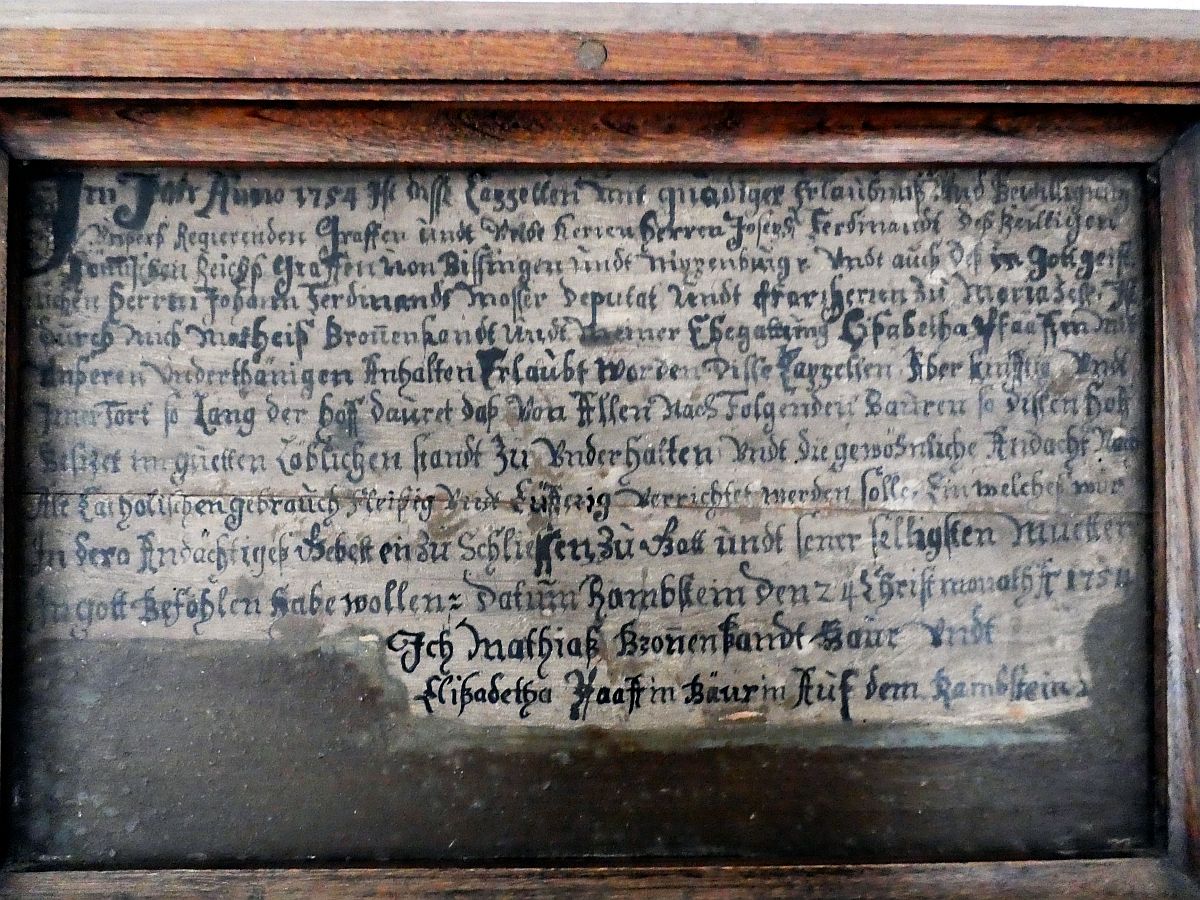 Im Jahr Anno 1754 Ist disse Cappellen mit gnädiger Erlaubnuß Undt Bewilligung
Unsers Regierenden Graffen undt Wildt Herren Herren Joseph Ferdinandt deß Heilligen
Römischen Reichs Graffen von Bissingen undt Nippenburg Vndt auch deß in Gott geist
lichen Herren Johann Ferdinandt Mosser Deputat Vndt Pfarrherren zu Mariazell Ist
durch mich Matheiß Bronenkandt Undt Meiner Ehegattung Elsabetha Pfaaffin mit
Anßeren Underthänigen Anhalten Erlaubt worden Disse Cappellen Aber künfftig Vndt
Imer Fort so Lang der Hoff dauret daß von Allen Nach Folgenden Bauren so dissen Hoff
Besitzet im guetten Löblichen standt Zu Vnderhalten Vndt die gewöhnliche Andacht Nach
Alt Catholischen gebrauch Fleisig Vndt Eüfferig Verrichtet werden solle, Ein welcheß wür
In dero Andächtigeß Gebett ein zu Schliessen, Zu Gott undt sener selligsten Muetter
In gott Beföhlen habe wollen: Datum Rambstein Den 24 Christmonath A 1754
Ich Mathiaß Bronenkandt Baur Vndt
Elißadetha Pfaaffin Bäurin Auf dem Rambstein